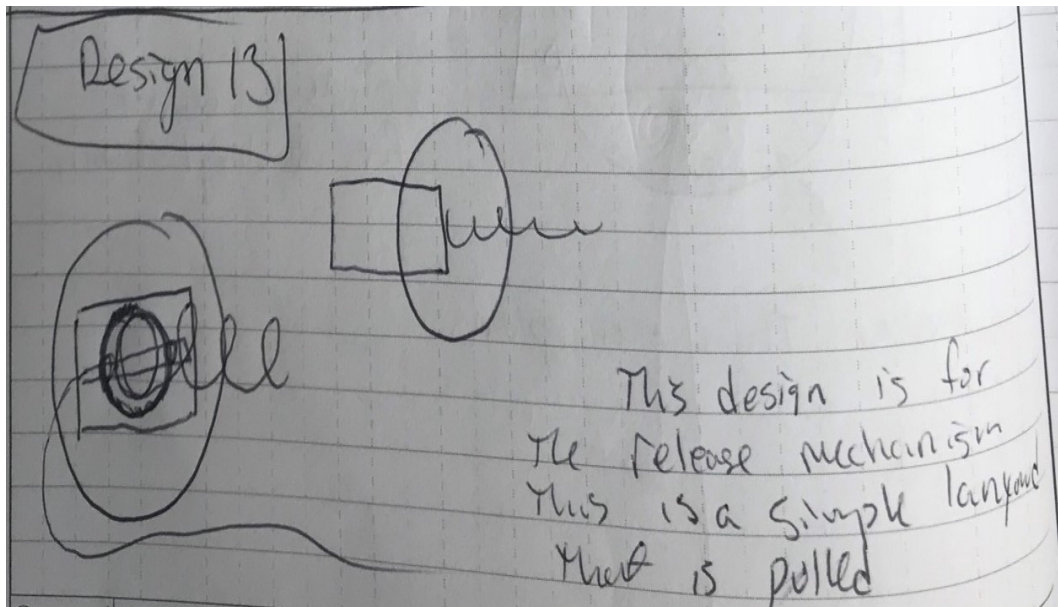 Design 13
This design is for
The release mechanism
This is a simple lanyard
that is pulled